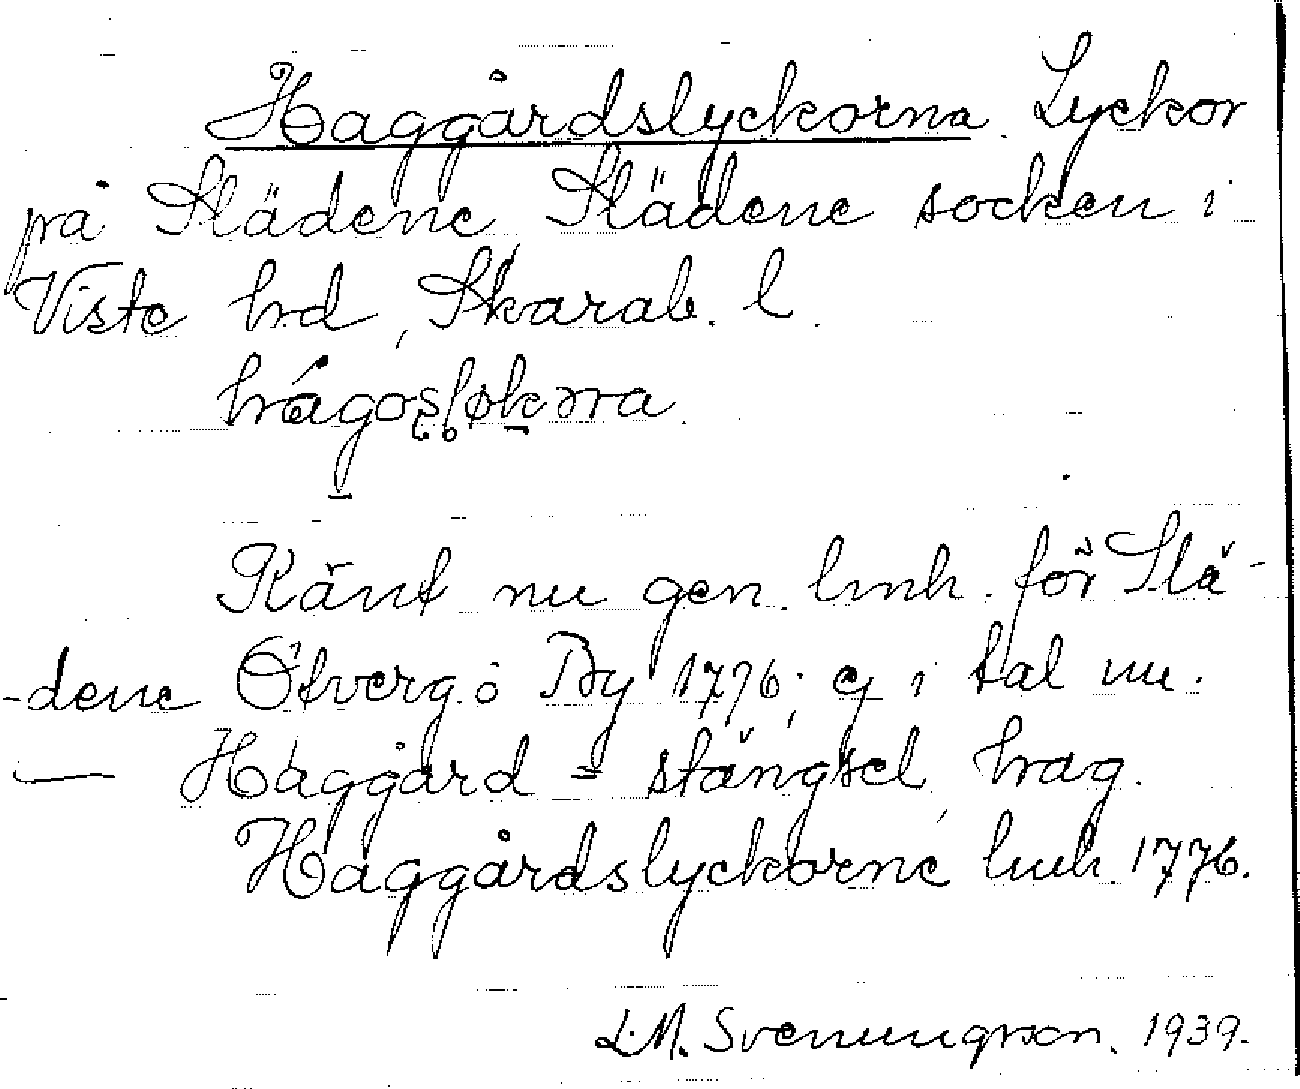 Haggårdslyckorna. Lyckor
på Slädene, Slädene socken i
Viste hd, Skarab. l.
Känt nu gen. lmh. för Slä-
-dene Öfverg.ö By 1776; ej i tal nu.
— Haggård = stängsel, hag.
Haggårdslyckorne lmh. 1776.
L.M. Svenungsson. 1939.